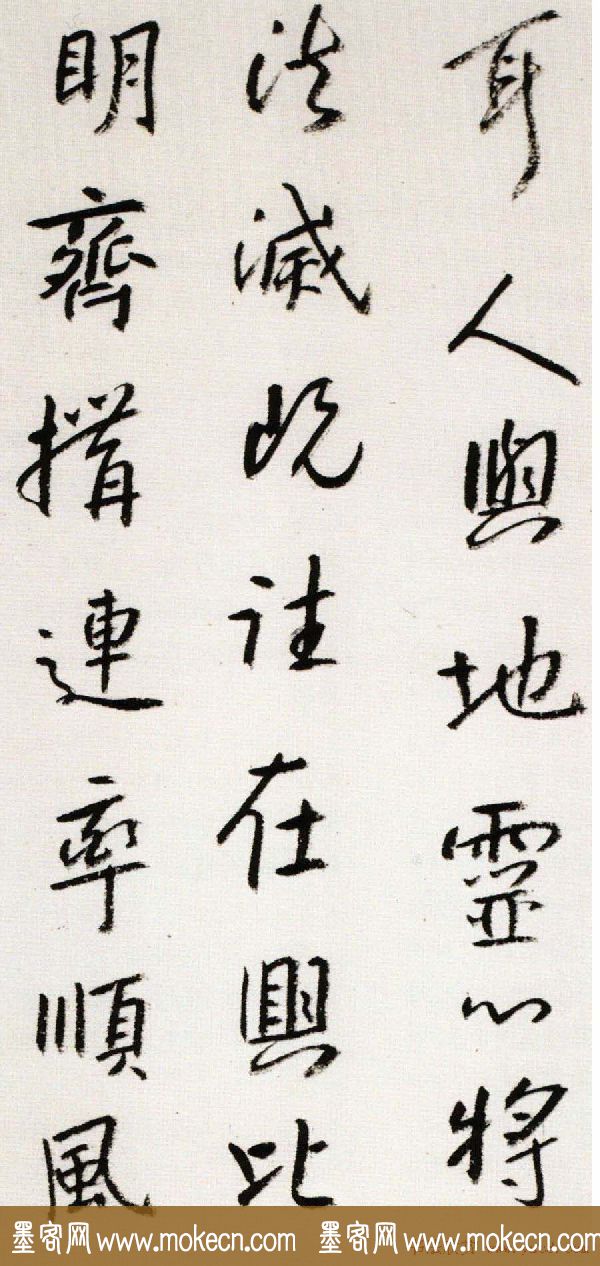 耳人與地靈心將
法滅既往在興比
明齊揖連率順風
墨客网 www.mokecn.com 墨客网 www.mokecn.com